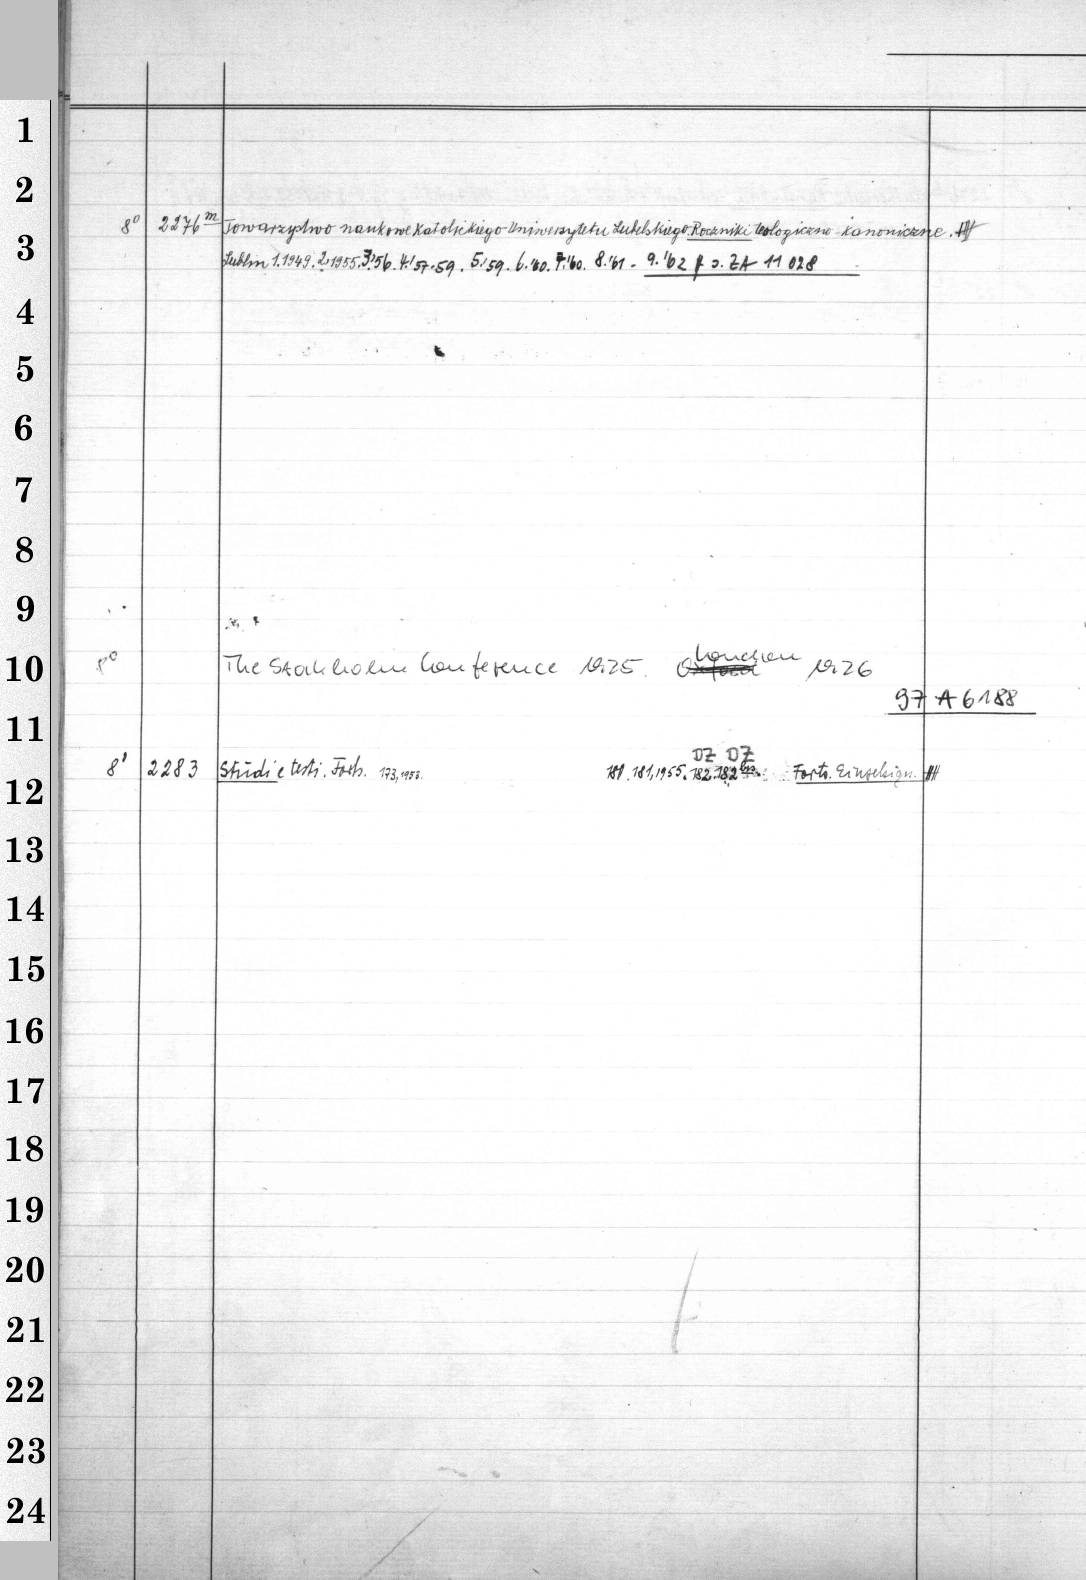 1
2
8° 2276 m Towarzystwo naukowe Katolickiego Uniwersytetu Lubelskiego Roczniki teologiczno-kanoniczne.
3
Lublin 1.1949. 2.1955. 3.'56. 4.'57-59. 5.'59. 6.'60. 7.'60. 8.'61. - 9.'62 ZA 11 028
4
5
6
7
8
9
10
8° The Stockholm Conference 1925. London 1926
97 A 6188
11
DZ DZ
8° 2283 Studi e testi. Forts. 173,1953. 180. 181,1955. 182. 182 bis. Forts. Einzelsign.
12
13
14
15
16
17
18
19
20
21
22
23
24